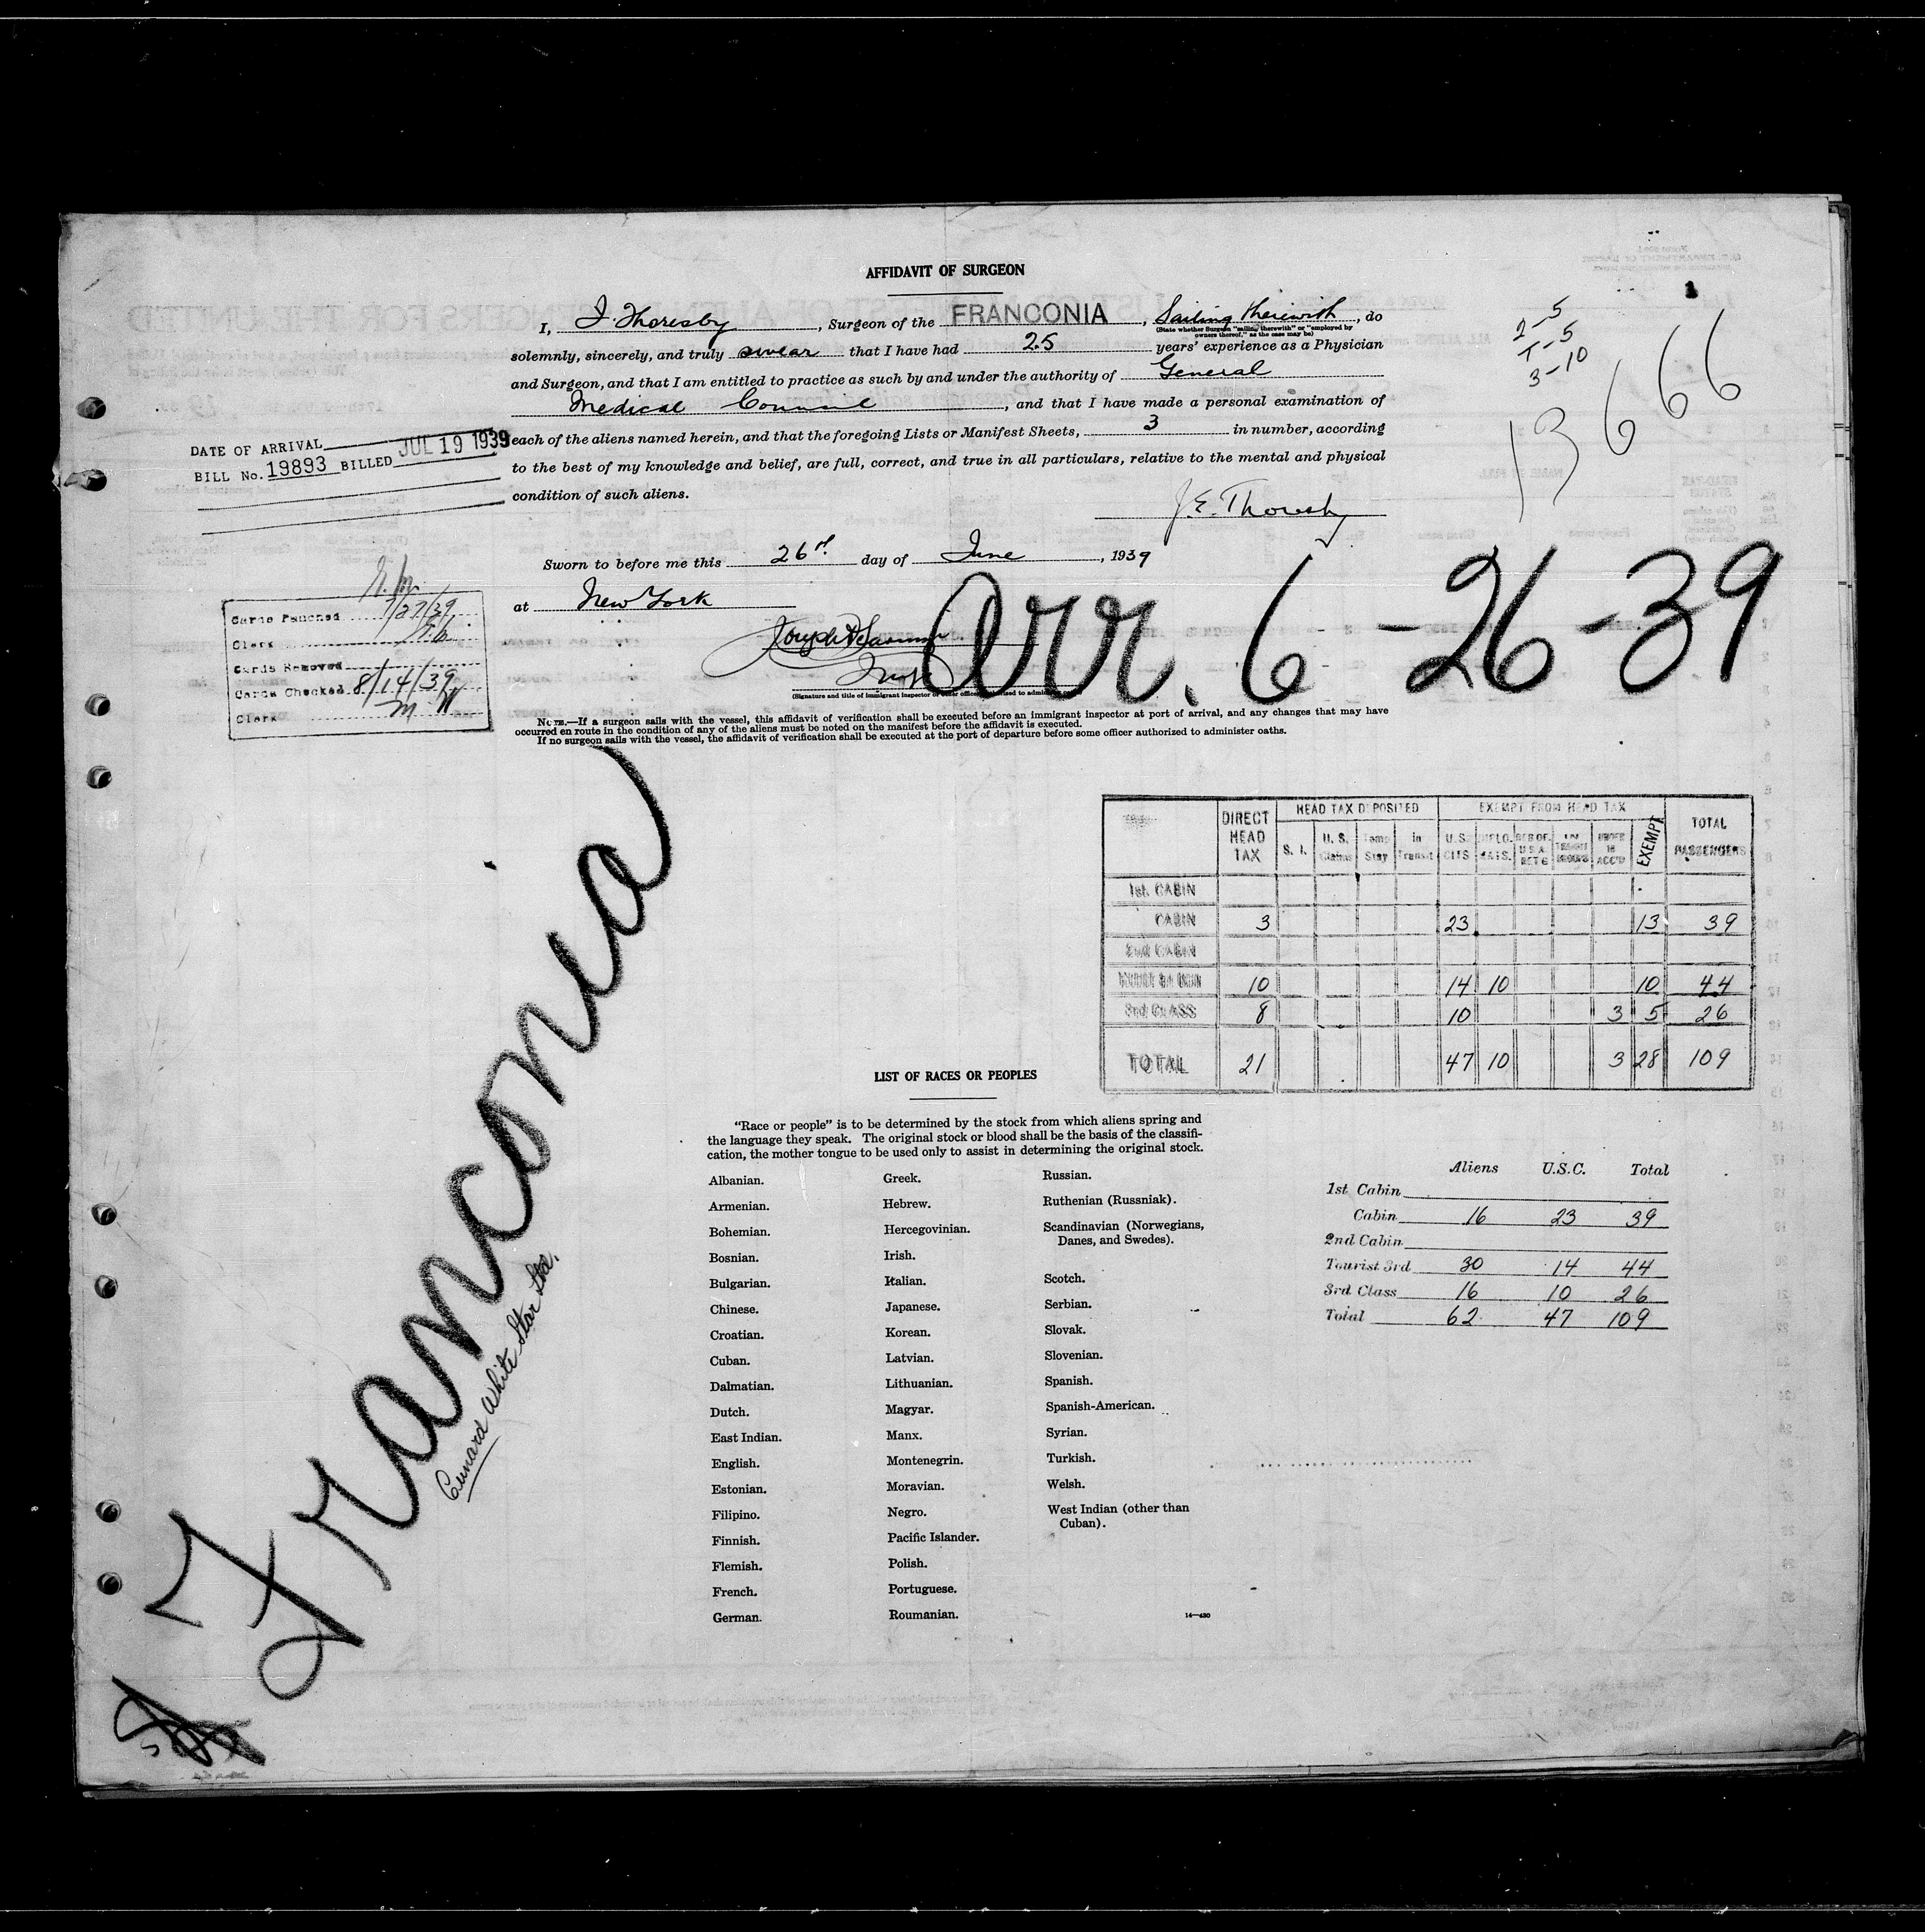 AFFIDAVIT OF SURGEON
I, J. Thoresby, Surgeon of the FRANCONIA, Sailing therewith, do
(State whether Surgeon "sailing therewith" or "employed by
owners thereof," as the case may be)
solemnly, sincerely, and truly swear that I have had 25 years' experience as a Physician
and Surgeon, and that I am entitled to practice as such by and under the authority of General
Medical Council, and that I have made a personal examination of
each of the aliens named herein, and that the foregoing Lists or Manifest Sheets, 3 in number, according
to the best of my knowledge and belief, are full, correct, and true in all particulars, relative to the mental and physical
condition of such aliens.
J. E. Thoresby
Sworn to before me this 26th day of June, 1939
at New York
(Signature and title of immigrant inspector or other officer authorized to administer oaths)
NOTE.—If a surgeon sails with the vessel, this affidavit of verification shall be executed before an immigrant inspector at port of arrival, and any changes that may have
occurred en route in the condition of any of the aliens must be noted on the manifest before the affidavit is executed.
If no surgeon sails with the vessel, the affidavit of verification shall be executed at the port of departure before some officer authorized to administer oaths.
2-5
T-5
3-10
13666
Arr. 6-26-39
DATE OF ARRIVAL
BILL No. 19893 BILLED JUL 19 1939
Cards Punched 7/27/39
Clerk
Cards Removed
Cards Checked 8/14/39
Clerk M W
Franconia
Cunard White Star Ltd.
DIRECT HEAD TAX HEAD TAX DEPOSITED EXEMPT FROM HEAD TAX TOTAL PASSENGERS
S. I. U. S. Claims Temp Stay In Transit U.S. CITS DIPLOMATS. RES OF U.S.A. RET'G UNDER 16 ACC'D EXEMPT
1st. CABIN
CABIN 3 23 13 39
2nd CABIN
10 14 10 10 44
3rd CLASS 8 10 3 5 26
TOTAL 21 47 10 3 28 109
LIST OF RACES OR PEOPLES
"Race or people" is to be determined by the stock from which aliens spring and
the language they speak. The original stock or blood shall be the basis of the classifi-
cation, the mother tongue to be used only to assist in determining the original stock.
Albanian.
Armenian.
Bohemian.
Bosnian.
Bulgarian.
Chinese.
Croatian.
Cuban.
Dalmatian.
Dutch.
East Indian.
English.
Estonian.
Filipino.
Finnish.
Flemish.
French.
German.
Greek.
Hebrew.
Hercegovinian.
Irish.
Italian.
Japanese.
Korean.
Latvian.
Lithuanian.
Magyar.
Manx.
Montenegrin.
Moravian.
Negro.
Pacific Islander.
Polish.
Portuguese.
Roumanian.
Russian.
Ruthenian (Russniak).
Scandinavian (Norwegians,
Danes, and Swedes).
Scotch.
Serbian.
Slovak.
Slovenian.
Spanish.
Spanish-American.
Syrian.
Turkish.
Welsh.
West Indian (other than
Cuban).
14—430
Aliens U.S.C. Total
1st Cabin
Cabin 16 23 39
2nd Cabin
Tourist 3rd 30 14 44
3rd Class 16 10 26
Total 62 47 109